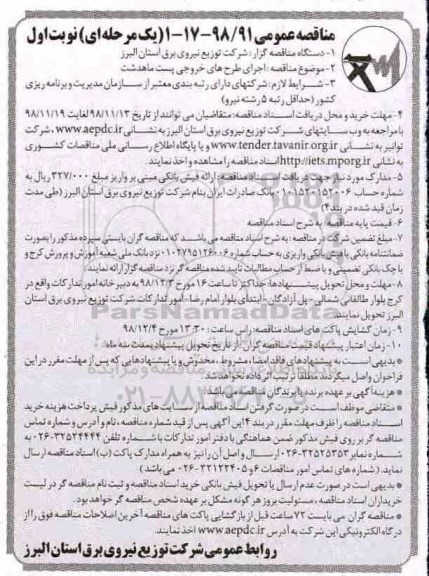 مناقصه عمومی ۹۸/۹۱-۱۷-۱ (یک مرحله ای) نوبت اول
۱- دستگاه مناقصه گزار: شرکت توزیع نیروی برق استان البرز
۲- موضوع مناقصه: اجرای طرح های خروجی پست ماهدشت
۳- شرایط لازم: شرکتهای دارای رتبه بندی معتبر از سازمان مدیریت و برنامه ریزی
کشور (حداقل رتبه ۵ رشته نیرو)
۴- مهلت خرید و محل دریافت اسناد مناقصه: متقاضیان می توانند از تاریخ ۹۸/۱۱/۱۳ لغایت ۹۸/۱۱/۱۹
با مراجعه به وب سایتهای شرکت توزیع نیروی برق استان البرز به نشانی www.aepdc.ir، شرکت
توانیر به نشانی www.tender.tavanir.org.ir و یا پایگاه اطلاع رسانی ملی مناقصات کشوری
به نشانی http://iets.mporg.ir اسناد مناقصه را مشاهده و اخذ نمایند.
۵- مدارک مورد نیاز جهت دریافت اسناد مناقصه: ارائه فیش بانکی مبنی بر واریز مبلغ ۳۲۷/۰۰۰ ریال به
شماره حساب ۰۱۰۱۵۲۰۱۵۲۰۰۶ بانک صادرات ایران بنام شرکت توزیع نیروی برق استان البرز (طی مدت
زمان قید شده در بند ۴)
۶- قیمت پایه مناقصه: به شرح اسناد مناقصه
۷- مبلغ تضمین شرکت در مناقصه: به شرح اسناد مناقصه می باشد که مناقصه گران بایستی سپرده مذکور را بصورت
ضمانتنامه بانکی یا فیش بانکی واریزی به حساب شماره ۰۱۰۲۷۹۵۱۲۶۰۰۶ نزد بانک ملی شعبه آموزش و پرورش کرج و
یا چک بانکی تضمینی و یا ضبط از حساب مطالبات تایید شده مناقصه گر نزد مناقصه گزار ارائه نمایند.
۸- مهلت و محل تحویل پیشنهادها: حداکثر تا ساعت ۱۶ مورخ ۹۸/۱۲/۳ به دبیر خانه امور تدارکات واقع در
کرج بلوار طالقانی شمالی- پل آزادگان- ابتدای بلوار امام رضا- امور تدارکات شرکت توزیع نیروی برق استان
البرز تحویل نمایند.
۹- زمان گشایش پاکت های اسناد مناقصه: راس ساعت: ۱۳:۳۰ مورخ ۹۸/۱۲/۴
۱۰- زمان اعتبار پیشنهاد قیمت مناقصه گران: از تاریخ تحویل پیشنهاد بمدت سه ماه.
* بدیهی است به پیشنهادهای فاقد امضاء، مشروط، مخدوش و یا پیشنهادهایی که پس از مهلت مقرر در این
فراخوان واصل میگردند مطلقا ترتیب اثر داده نخواهد شد.
* هزینه آگهی بر عهده برنده یا برندگان مناقصه می باشد.
* متقاضی موظف است در صورت گرفتن اسناد مناقصه از سایت های مذکور فیش پرداخت هزینه خرید
اسناد مناقصه را ظرف مهلت مقرر در بند ۴ این آگهی پس از قید شماره مناقصه، نام و آدرس و شماره تماس
مناقصه گر بر روی فیش مذکور ضمن هماهنگی با دفتر امور تدارکات با شماره تلفن ۳۲۵۲۴۴۴۴-۰۲۶ به
شماره نمابر ۳۲۵۲۵۳۵۳-۰۲۶ ارسال و اصل آن را نیز به همراه مدارک پاکت (ب) اسناد مناقصه ارسال
نماید. (شماره های تماس امور مناقصات ۶ و ۳۲۱۲۲۴۰۵-۰۲۶ می باشد)
* بدیهی است در صورت عدم ارسال یا تحویل فیش بانکی خرید اسناد مناقصه و ثبت نام مناقصه گر در لیست
خریداران اسناد مناقصه، مسئولیت بروز هر گونه مشکل بر عهده شخص مناقصه گر خواهد بود.
* مناقصه گران می بایست ۷۲ ساعت قبل از بازگشایی پاکت های مناقصه آخرین اصلاحات مناقصه فوق را از
درگاه الکترونیکی این شرکت به آدرس www.aepdc.ir اخذ نمایند.
روابط عمومی شرکت توزیع نیروی برق استان البرز